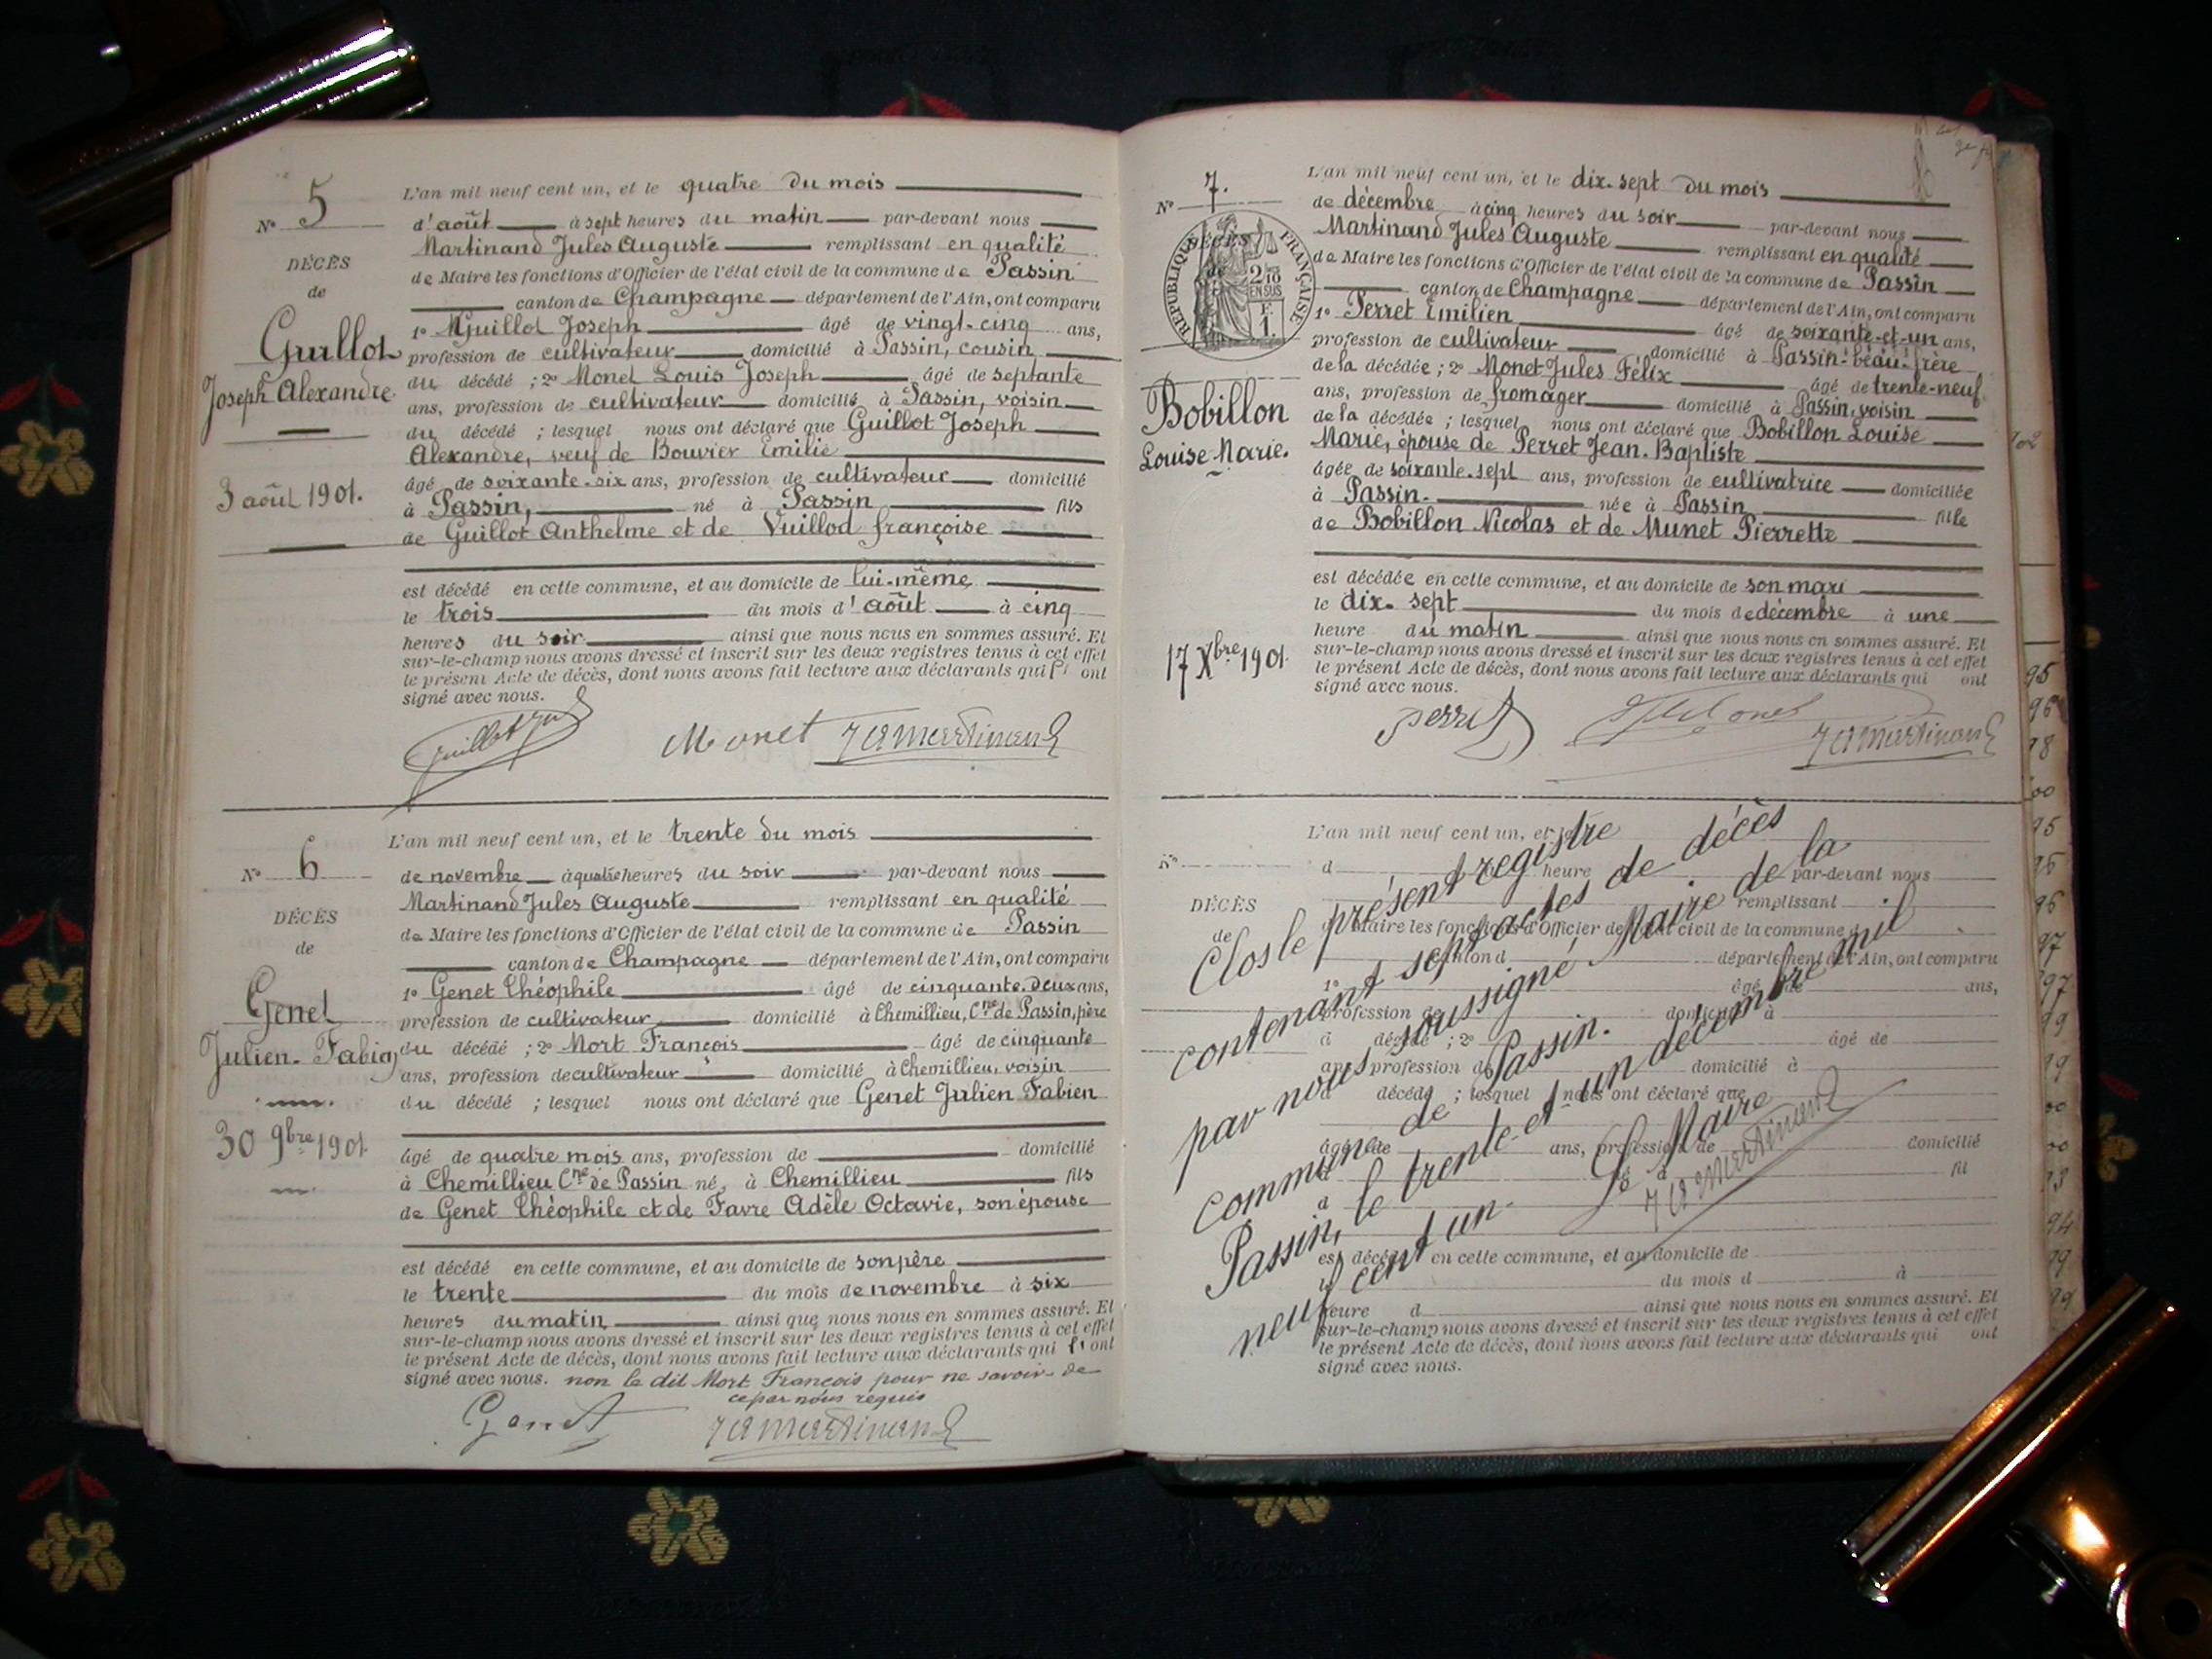 N° 5
DÉCÈS
de
Guillot
Joseph Alexandre
3 août 1901.
L'an mil neuf cent un, et le quatre du mois
d'août à sept heures du matin par-devant nous
Martinand Jules Auguste remplissant en qualité
de Maire les fonctions d'Officier de l'état civil de la commune de Passin
canton de Champagne département de l'Ain, ont comparu
1° Guillot Joseph âgé de vingt-cinq ans,
profession de cultivateur domicilié à Passin, cousin
du décédé ; 2° Monet Louis Joseph âgé de septante
ans, profession de cultivateur domicilié à Passin, voisin
du décédé ; lesquel nous ont déclaré que Guillot Joseph
Alexandre, veuf de Bouvier Emilie
âgé de soixante-six ans, profession de cultivateur domicilié
à Passin, né à Passin fils
de Guillot Anthelme et de Vuillod françoise
est décédé en cette commune, et au domicile de lui-même
le trois du mois d'août à cinq
heures du soir ainsi que nous nous en sommes assuré. Et
sur-le-champ nous avons dressé et inscrit sur les deux registres tenus à cet effet
le présent Acte de décès, dont nous avons fait lecture aux déclarants qui ont
signé avec nous.
Guillot Monet J A Martinand
N° 6
DÉCÈS
de
Genet
Julien-Fabien
30 9bre 1901
L'an mil neuf cent un, et le trente du mois
de novembre à quatre heures du soir par-devant nous
Martinand Jules Auguste remplissant en qualité
de Maire les fonctions d'Officier de l'état civil de la commune de Passin
canton de Champagne département de l'Ain, ont comparu
1° Genet Théophile âgé de cinquante-deux ans,
profession de cultivateur domicilié à Chemillieu, Cne de Passin, père
du décédé ; 2° Mort François âgé de cinquante
ans, profession de cultivateur domicilié à Chemillieu, voisin
du décédé ; lesquel nous ont déclaré que Genet Julien Fabien
âgé de quatre mois ans, profession de domicilié
à Chemillieu Cne de Passin né à Chemillieu fils
de Genet Théophile et de Favre Adèle Octavie, son épouse
est décédé en cette commune, et au domicile de son père
le trente du mois de novembre à six
heures du matin ainsi que nous nous en sommes assuré. Et
sur-le-champ nous avons dressé et inscrit sur les deux registres tenus à cet effet
le présent Acte de décès, dont nous avons fait lecture aux déclarants qui ont
signé avec nous. non le dit Mort François pour ne savoir de
ce par nous requis
Genet J A Martinand
N° 7.
DÉCÈS
de
RÉPUBLIQUE FRANÇAISE
2/10
EN SUS
F.
1.
Bobillon
Louise Marie.
17 Xbre 1901
L'an mil neuf cent un, et le dix-sept du mois
de décembre à cinq heures du soir par-devant nous
Martinand Jules Auguste remplissant en qualité
de Maire les fonctions d'Officier de l'état civil de la commune de Passin
canton de Champagne département de l'Ain, ont comparu
1° Perret Emilien âgé de soixante-et-un ans,
profession de cultivateur domicilié à Passin-beau-frère
de la décédée ; 2° Monet Jules Félix âgé de trente-neuf
ans, profession de fromager domicilié à Passin, voisin
de la décédée ; lesquel nous ont déclaré que Bobillon Louise
Marie, épouse de Perret Jean-Baptiste
âgée de soixante-sept ans, profession de cultivatrice domiciliée
à Passin. née à Passin fille
de Bobillon Nicolas et de Munet Pierrette
est décédée en cette commune, et au domicile de son mari
le dix-sept du mois de décembre à une
heure du matin ainsi que nous nous en sommes assuré. Et
sur-le-champ nous avons dressé et inscrit sur les deux registres tenus à cet effet
le présent Acte de décès, dont nous avons fait lecture aux déclarants qui ont
signé avec nous.
Perret Monet J A Martinand
L'an mil neuf cent un, et le
N°
d heure par-devant nous
DÉCÈS
remplissant
de
Maire les fonctions d'Officier de l'état civil de la commune
canton d département de l'Ain, ont comparu
1° âgé de ans,
profession de domicilié à
d décédé ; 2° âgé de
ans, profession de domicilié à
décédé ; lesquel nous ont déclaré que
âgé de ans, profession de domicilié
à né à fil
est décédé en cette commune, et au domicile de
le du mois d à
heure d ainsi que nous nous en sommes assuré. Et
sur-le-champ nous avons dressé et inscrit sur les deux registres tenus à cet effet
le présent Acte de décès, dont nous avons fait lecture aux déclarants qui ont
signé avec nous.
Clos le présent registre
contenant sept actes de décès
par nous soussigné Maire de la
commune de Passin.
Passin, le trente-et-un décembre mil
neuf cent un.
Le Maire
J A Martinand